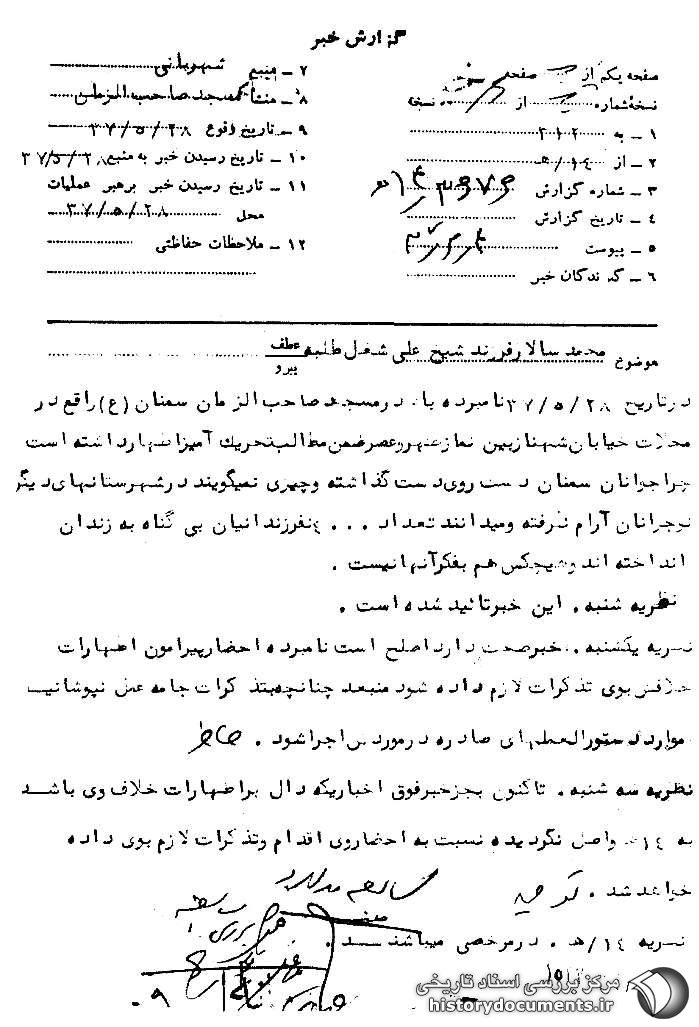 گزارش خبر
صفحه یکم از صفحه
نسخهٔ شماره از نسخه
۱ ـ به ۳۱۲
۲ ـ از ۱۴/هـ
۳ ـ شماره گزارش
۴ ـ تاریخ گزارش
۵ ـ پیوست
۶ ـ گیرندگان خبر
۷ ـ منبع شهربانی
۸ ـ منشأ مسجد صاحب الزمان
۹ ـ تاریخ وقوع ۳۷/۵/۲۸
۱۰ ـ تاریخ رسیدن خبر به منبع ۳۷/۵/۲۸
۱۱ ـ تاریخ رسیدن خبر برهبر عملیات
محل ۳۷/۵/۲۸
۱۲ ـ ملاحظات حفاظتی
موضوع محمد سالار فرزند شیخ علی شغل طلبه عطف
پیرو
در تاریخ ۳۷/۵/۲۸ نامبرده بالا در مسجد صاحب الزمان سمنان (ع) واقع در
محلات خیابان شهناز بین نماز ظهر و عصر ضمن مطالب تحریک آمیز اظهار داشته است
چرا جوانان سمنان دست روی دست گذاشته و چیزی نمیگویند در شهرستانهای دیگر
جوانان آرام نگرفته و میدانند تعداد ۴۰۰۰ نفر زندانیان بی گناه به زندان
انداخته اند و هیچکس هم بفکر آنها نیست .
نظریه شنبه . این خبر تائید شده است .
نظریه یکشنبه . خبر صحت دارد اصلح است نامبرده احضار پیرامون اظهارات
خلافش بوی تذکرات لازم داده شود منبعد چنانچه بتذکرات جامه عمل نپوشانید
موارد دستورالعملهای صادره در موردش اجرا شود .
نظریه سه شنبه . تاکنون بجز خبر فوق اخباریکه دال بر اظهارات خلاف وی باشد
به ۱۴هـ واصل نگردیده نسبت به احضار وی اقدام و تذکرات لازم بوی داده
خواهد شد .
نظریه ۱۴/هـ . در مرخصی میباشند .
مرکز بررسی اسناد تاریخی
historydocuments.ir